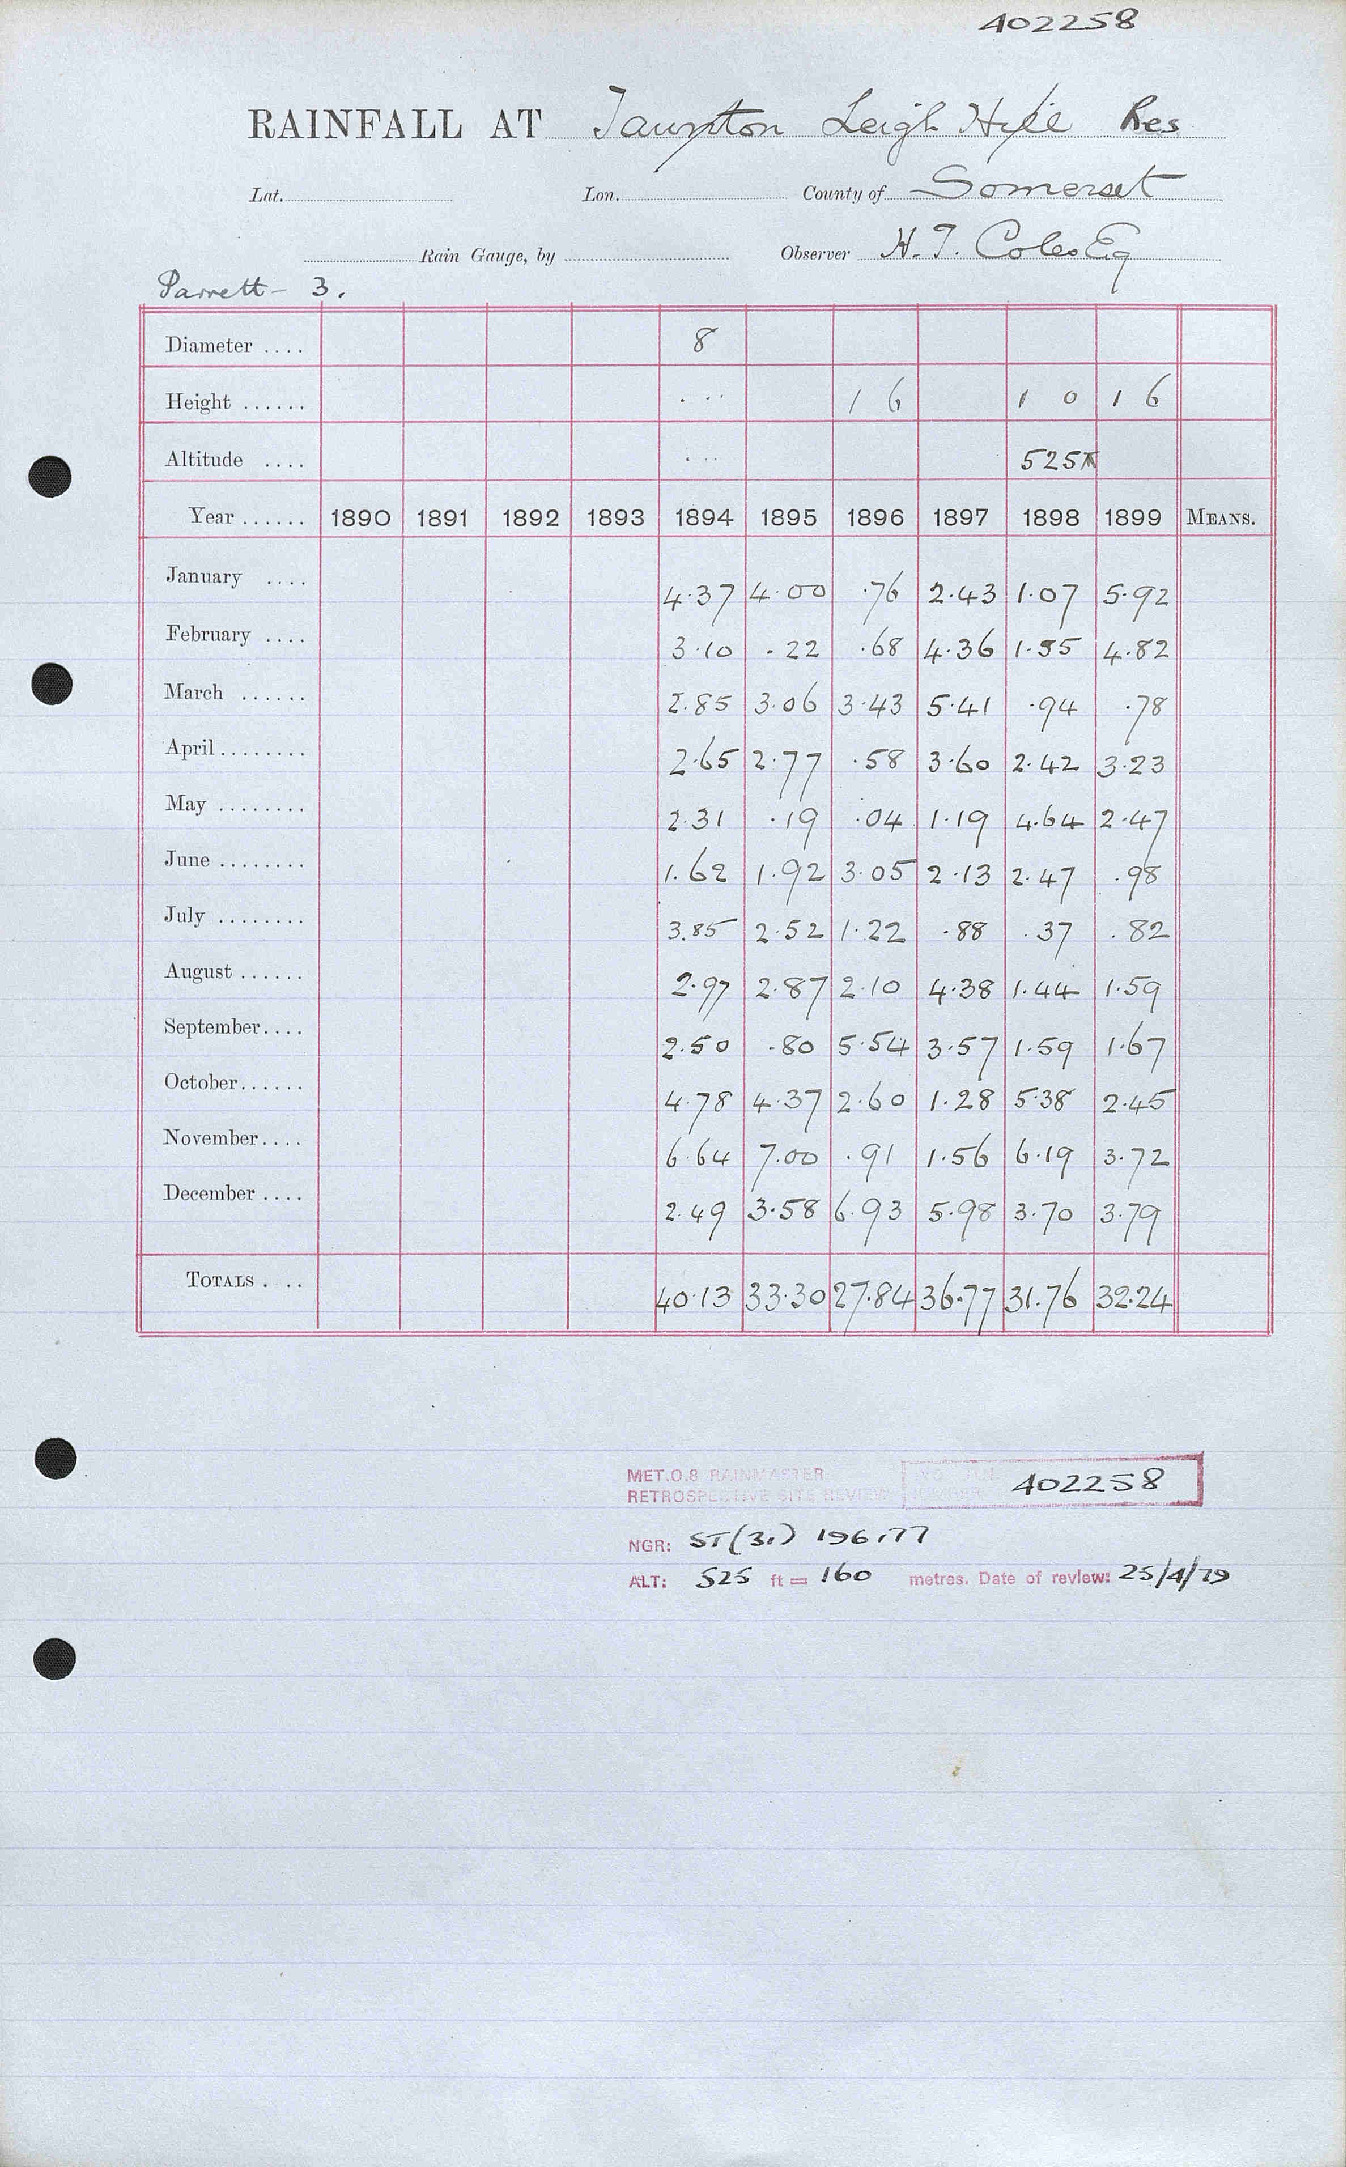 402258
RAINFALL AT Taunton Leigh Hill Res
Lat. Lon. County of Somerset
Rain Gauge, by Observer H. T. Coles Esq
Parrett - 3.
Diameter .... 8
Height ...... ... 1 6 1 0 1 6
Altitude .... ... 525
Year ...... 1890 1891 1892 1893 1894 1895 1896 1897 1898 1899 MEANS.
January .... 4.37 4.00 .76 2.43 1.07 5.92
February .... 3.10 .22 .68 4.36 1.55 4.82
March ...... 2.85 3.06 3.43 5.41 .94 .78
April ........ 2.65 2.77 .58 3.60 2.42 3.23
May ........ 2.31 .19 .04 1.19 4.64 2.47
June ........ 1.62 1.92 3.05 2.13 2.47 .98
July ........ 3.85 2.52 1.22 .88 .37 .82
August ...... 2.97 2.87 2.10 4.38 1.44 1.59
September.... 2.50 .80 5.54 3.57 1.59 1.67
October...... 4.78 4.37 2.60 1.28 5.38 2.45
November.... 6.64 7.00 .91 1.56 6.19 3.72
December .... 2.49 3.58 6.93 5.98 3.70 3.79
TOTALS . .. 40.13 33.30 27.84 36.77 31.76 32.24
MET.O.8 RAINMASTER
RETROSPECTIVE SITE REVIEW 402258
NGR: ST(31) 196177
ALT: 525 ft = 160 metres. Date of review: 25/4/79